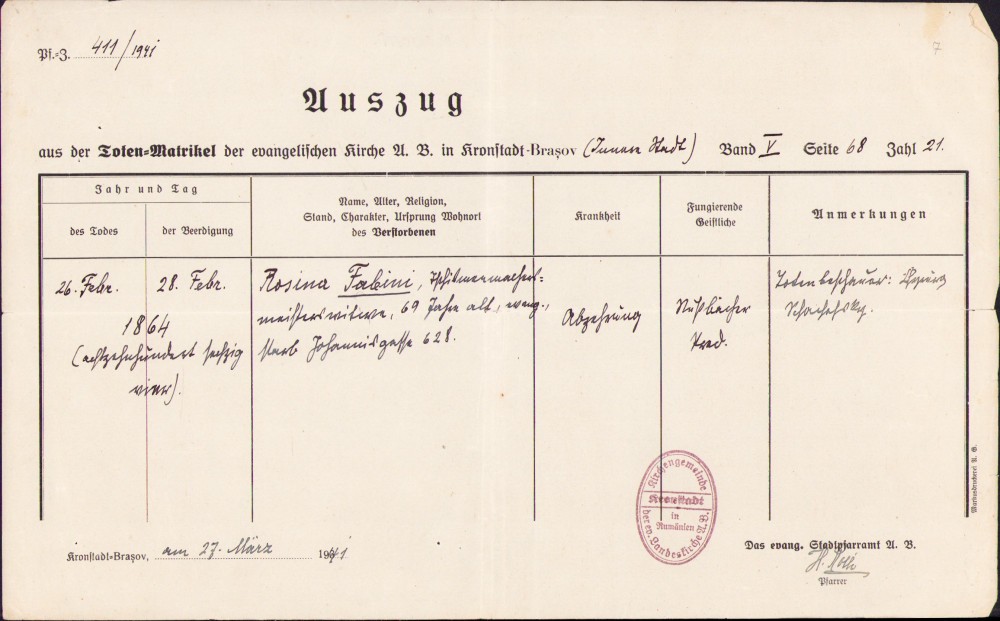 7
Pf.-Z. 411/1941
Auszug
aus der Toten-Matrikel der evangelischen Kirche A. B. in Kronstadt-Brașov (Innere Stadt) Band V Seite 68 Zahl 21.
Jahr und Tag
des Todes
der Beerdigung
Name, Alter, Religion,
Stand, Charakter, Ursprung Wohnort
des Verstorbenen
Krankheit
Fungierende
Geistliche
Anmerkungen
26. Febr. 28. Febr.
1864
(achtzehnhundert sechzig
vier).
Rosina Fabini, Tschismenmachers-
meisterswitwe, 69 Jahre alt, evang.,
starb Johannisgasse 628.
Abzehrung
Nußbächer
Pred.
Totenbeschauer:
Kirchengemeinde
Kronstadt
in
Rumänien
der ev. Landeskirche A. B.
Kronstadt-Brașov, am 27. März 1941
Das evang. Stadtpfarramt A. B.
Pfarrer
Markusdruckerei A. G.